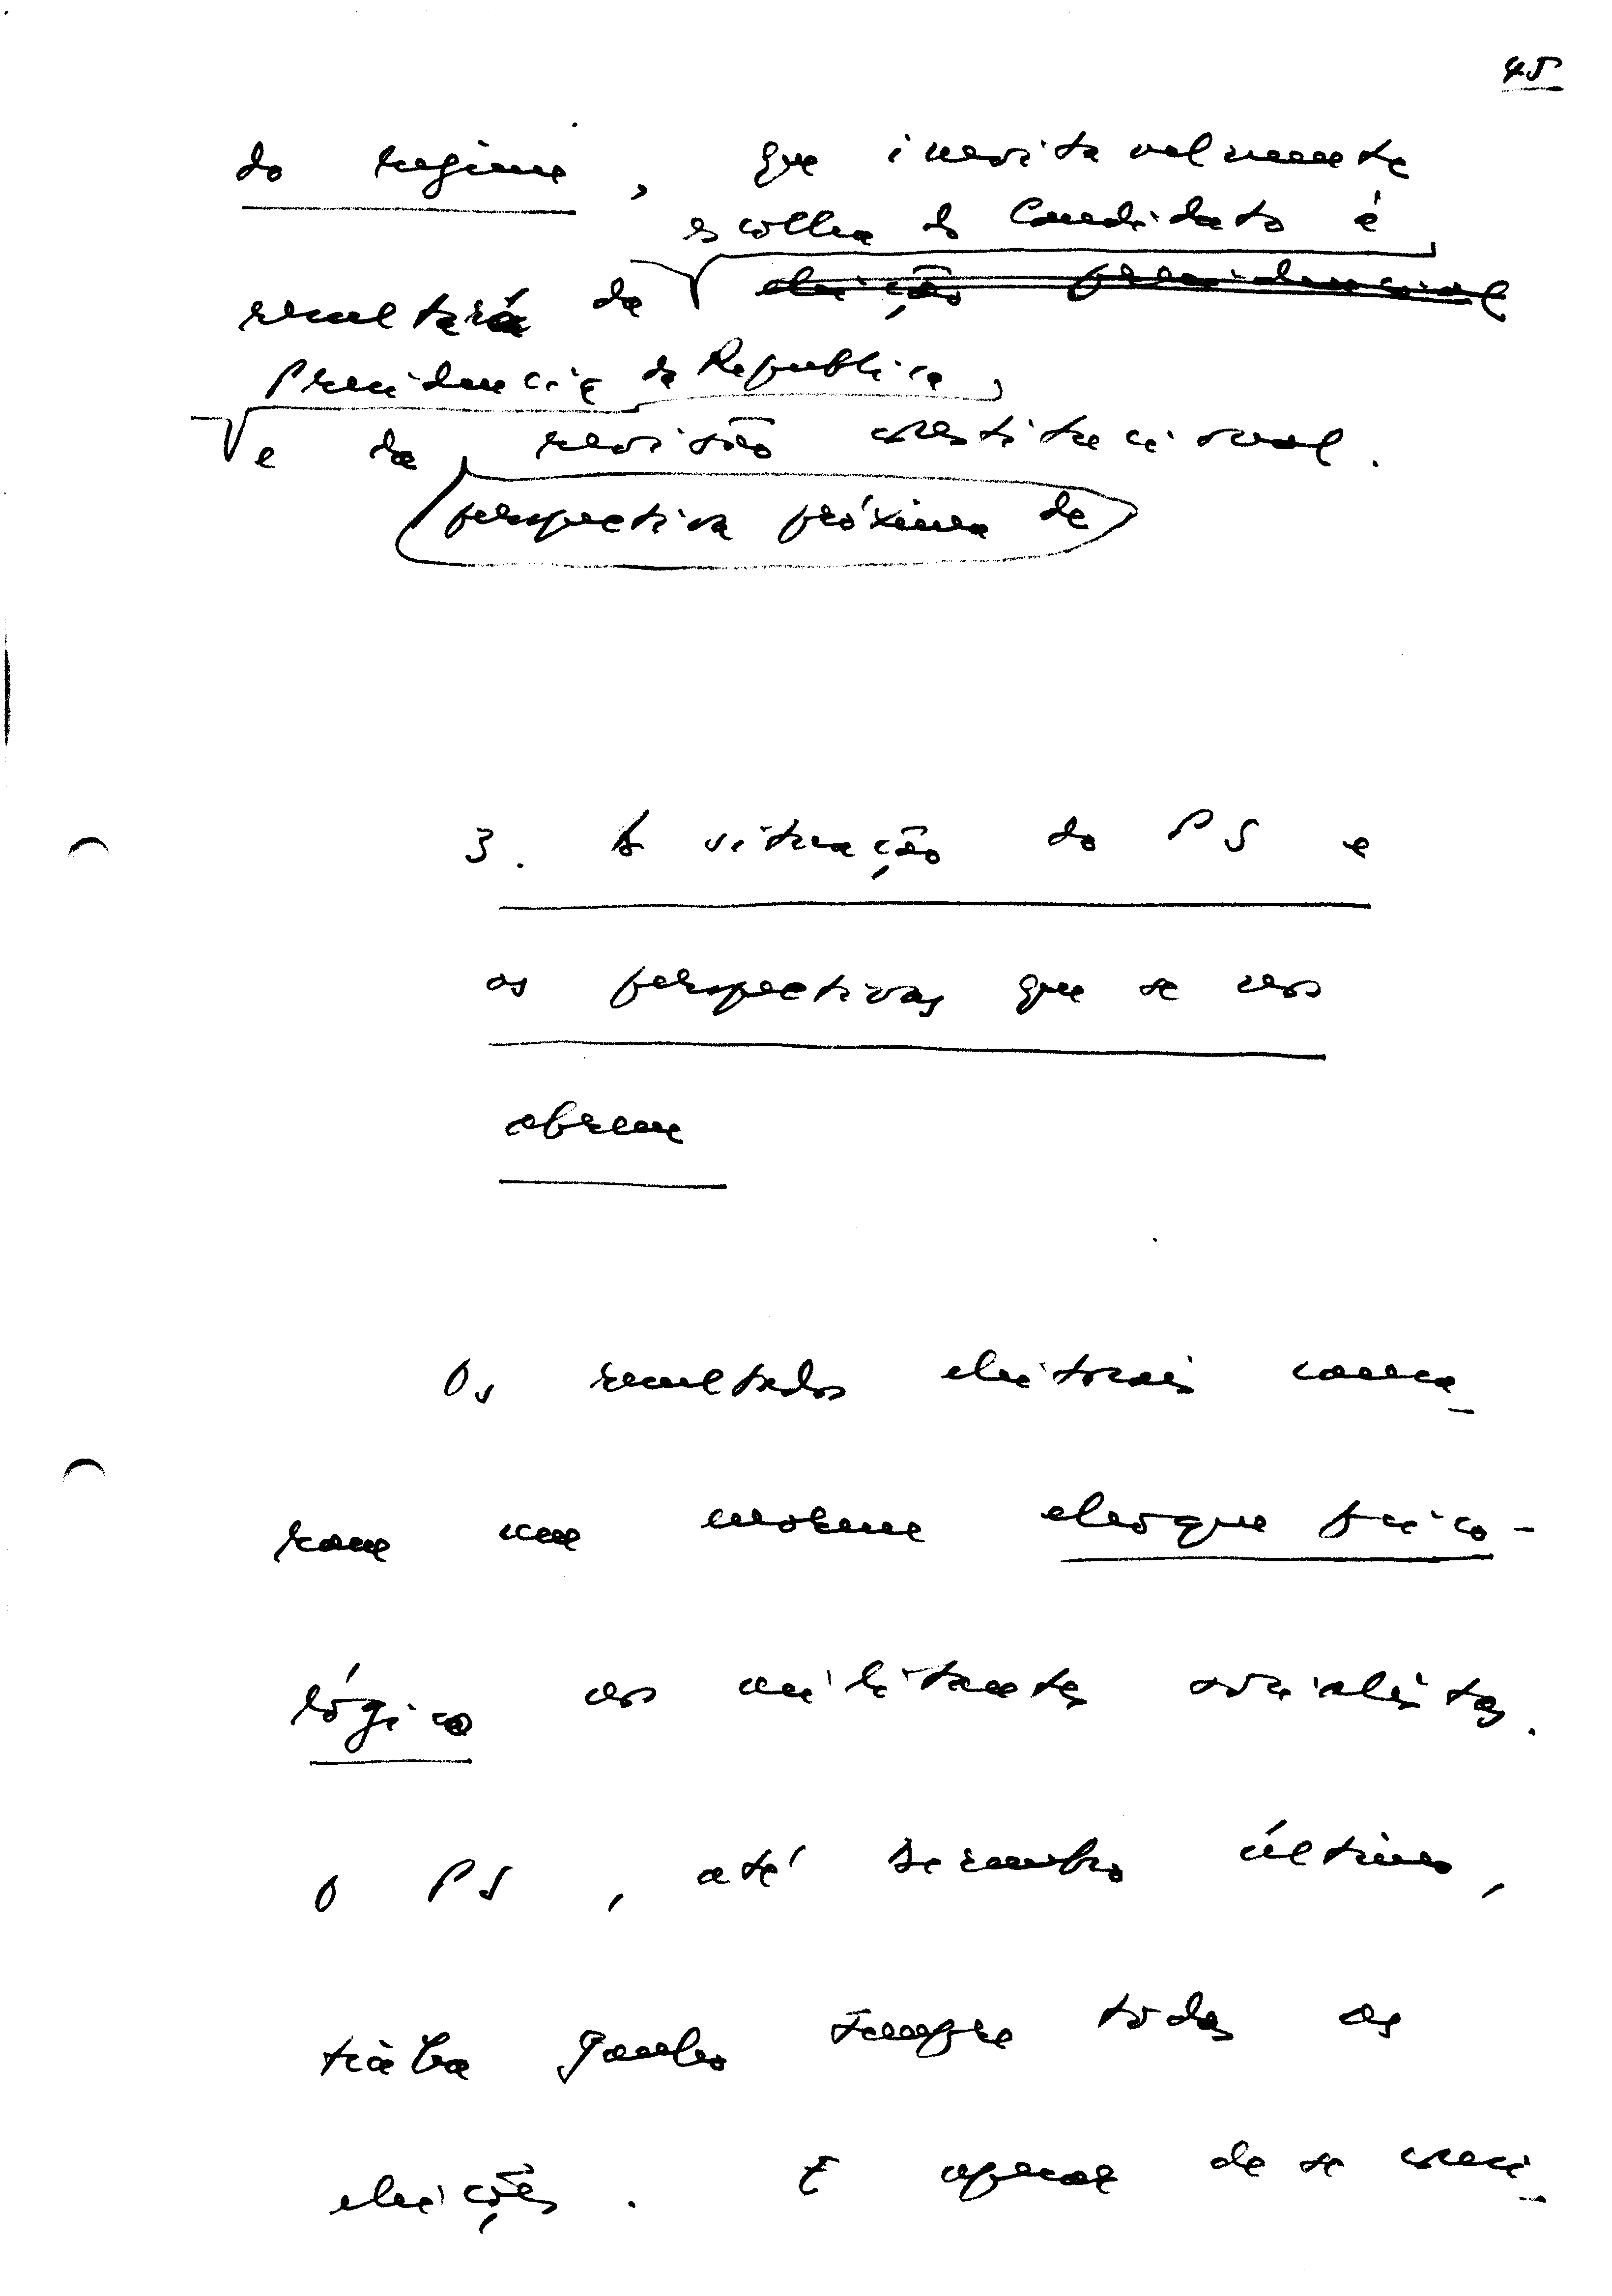 45
do regime, que inevitavelmente
escolha do Candidato à
resultará da eleição presidencial
Presidência da Republica,
e da revisão constitucional.
perspectiva próxima da
3. A situação do PS e
as perspectivas que se nos
abrem
Os resultados eleitorais causa-
ram um enorme choque psico-
lógico nos militantes socialistas.
O PS, até Dezembro último,
tinha ganho sempre todas as
eleições. E apesar de se consi-